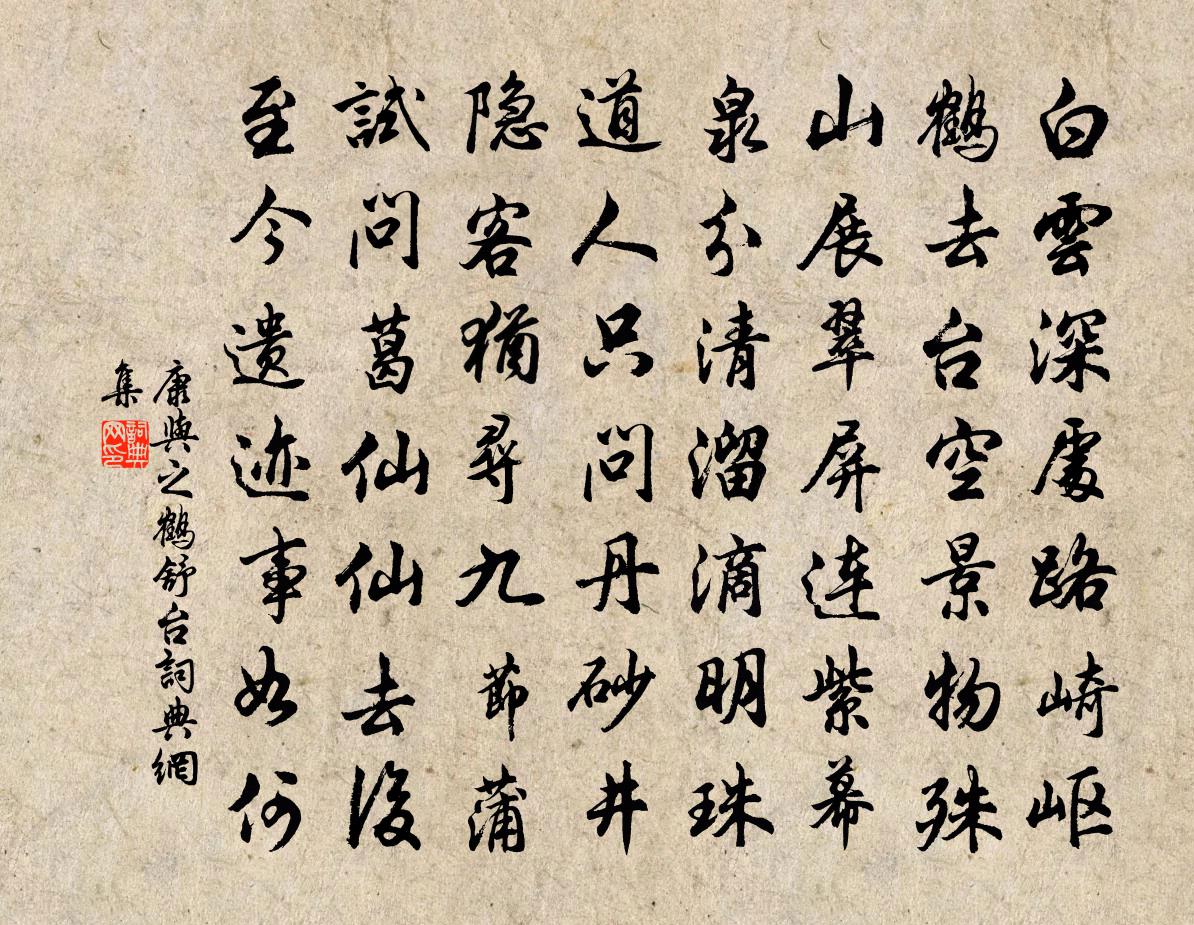 白雲深處路崎岖
鶴去台空景物殊
山展翠屏連紫幕
泉分清溜滴明珠
道人只问丹砂井
隐客猶尋九節蒲
試问葛仙仙去後
至今遗迹事如何
康與之鶴舒台詞典網
集
詞典
网印